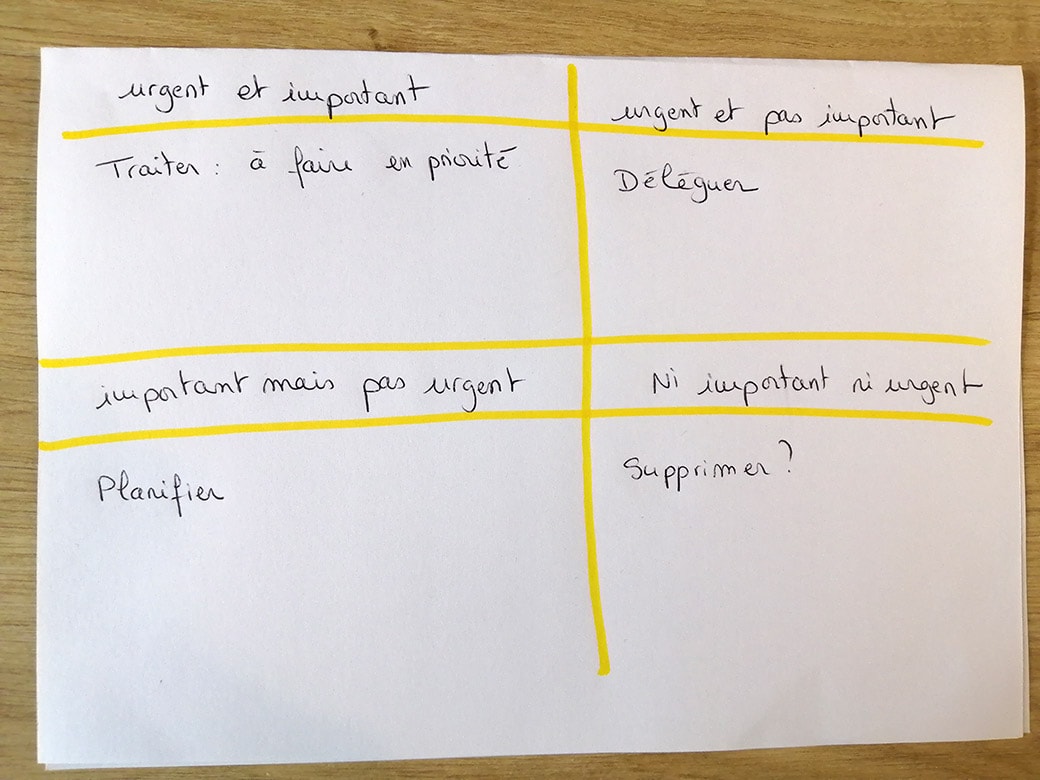 urgent et important
Traiter : à faire en priorité
urgent et pas important
Déléguer
important mais pas urgent
Planifier
Ni important ni urgent
Supprimer ?